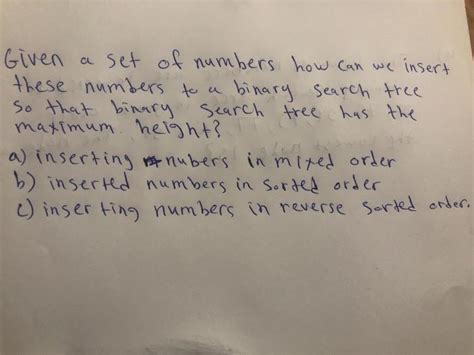 Given a set of numbers how can we insert
these numbers to a binary search tree
so that binary search tree has the
maximum height?
a) inserting nubers in mixed order
b) inserted numbers in sorted order
c) inserting numbers in reverse sorted order.